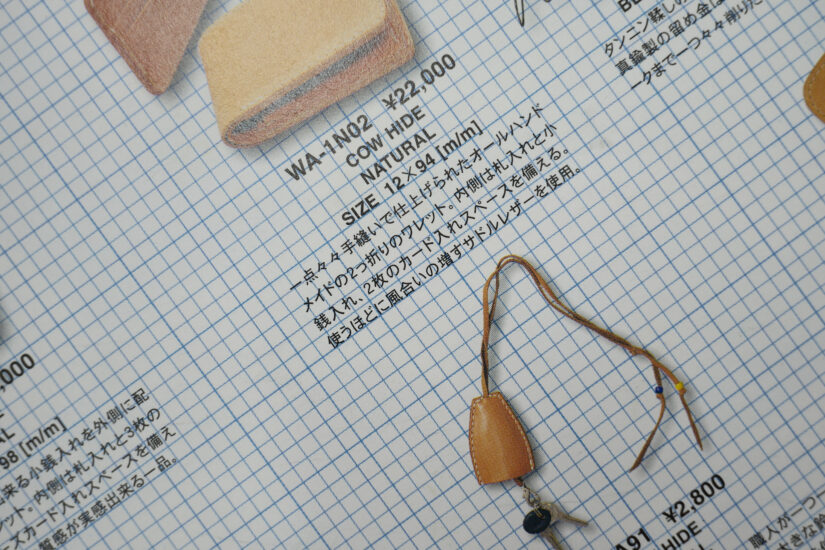 タンニン鞣しの
真鍮製の留め金は
ータまで一つ々々削りだ
WA-1N02 ¥22,000
COW HIDE
NATURAL
SIZE 12×94 [m/m]
一点々々手縫いで仕上げられたオールハンド
メイドの2っ折りのワレット。内側は札入れと小
銭入れ、2枚のカード入れスペースを備える。
使うほどに風合いの増すサドルレザーを使用。
,000
AL
98 [m/m]
来る小銭入れを外側に配
ット。内側は札入れと3枚の
ーズカード入れスペースを備え
質感が実感出来る一品。
A91 ¥2,800
HIDE
職人が一つ一